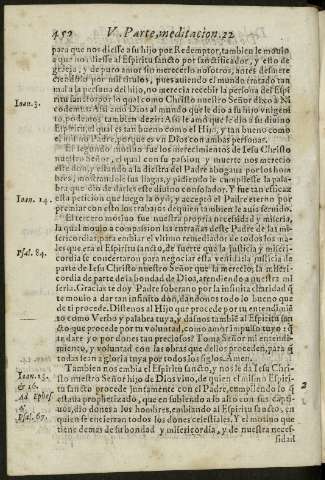 450 V. Parte, meditacion. 22
para que nos diesse a su hijo por Redemptor, tambien le mouio
a que nos diesse al Espiritu sancto por sanctificador, y esto de
gracia, y de puro amor sin merecerlo nosotros, antes
por mil titulos, pues auiendo el mundo tratado tan
mal a la persona del hijo, no merecia recebir la persona del Espi
ritu sancto por lo qual como Christo nuestro Señor dixo a Ni
Ioan. 3.
codemus: Assi amo Dios al mundo que le dio a su hijo vnigeni
to, podemos tambien dezir: Assi le amó que le dio a su diuino
Espiritu, el qual es tan bueno como el Hijo, y tan bueno como
el mismo Padre, porque es vn Dios con ambas personas.
El segundo motiuo fue los merecimientos de Iesu Christo
nuestro Señor, el qual con su passion y muerte nos merecio
este don, y estando a la diestra del Padre abogaua por los hom
bres, mostrandole sus llagas, y pidiendole cumpliesse la pala-
bra que dio de darles este diuino consolador. Y fue tan eficaz
Ioan. 14.
esta peticion que luego la oyó, y acceptó el Padre eterno por
premiar con esto los trabajos de quien tambien le auia seruido.
El tercero motiuo fue nuestra propria necessidad y miseria,
la qual mouio a compassion las entrañas deste Padre de las mi
sericordias, para embiar el vltimo remediador de todos los ma-
les que era el Espiritu sancto, de suerte que la justicia y miseri
Psal. 84.
cordia se concertaron para negociar esta venida: la justicia de
parte de Iesu Christo nuestro Señor que la merecio; la miseri
cordia de parte de la bondad de Dios, atendiendo a nuestra mi
seria. Gracias te doy Padre soberano por la infinita claridad q̃
te mouio a dar tan infinito don, dandonos todo lo bueno que
de ti procede. Distenos al Hijo que procede por tu entendimiẽ
to como Verbo y palabra tuya, y dasnos tambiẽ al Espiritu san
cto que procede por tu voluntad, como amor impulso tuyo: q̃
an darte yo por dones tan preciosos? Toma Señor mi entendi-
miento, y voluntad con las obras que dellos proceden, para q̃
todas sean a gloria tuya por todos los siglos. Amen.
Tambien nos embia el Espiritu sancto, y nos le da Iesu Chri-
Ioan. 15.
sto nuestro Señor hijo de Dios viuo, de quien el mismo Espiri
& 16.
tu sancto procede juntamente con el Padre, cumpliendo lo q̃
Ad Ephes
estaua prophetizado, que en subiendo a lo alto con sus capti-
4.
uos, dio dones a los hombres, embiando al Espiritu sancto, en
Psal. 67.
quien se encierran todos los dones celestiales. Y el motiuo que
tiene demas de su bondad y misericordia, y de nuestra neces-
sidad